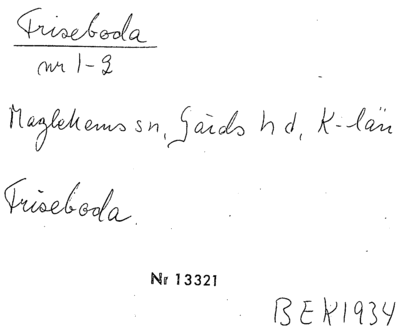 Friseboda
nr 1-2
Maglehems sn, Gärds hd, K-län
Friseboda.
Nr 13321
BEK1934